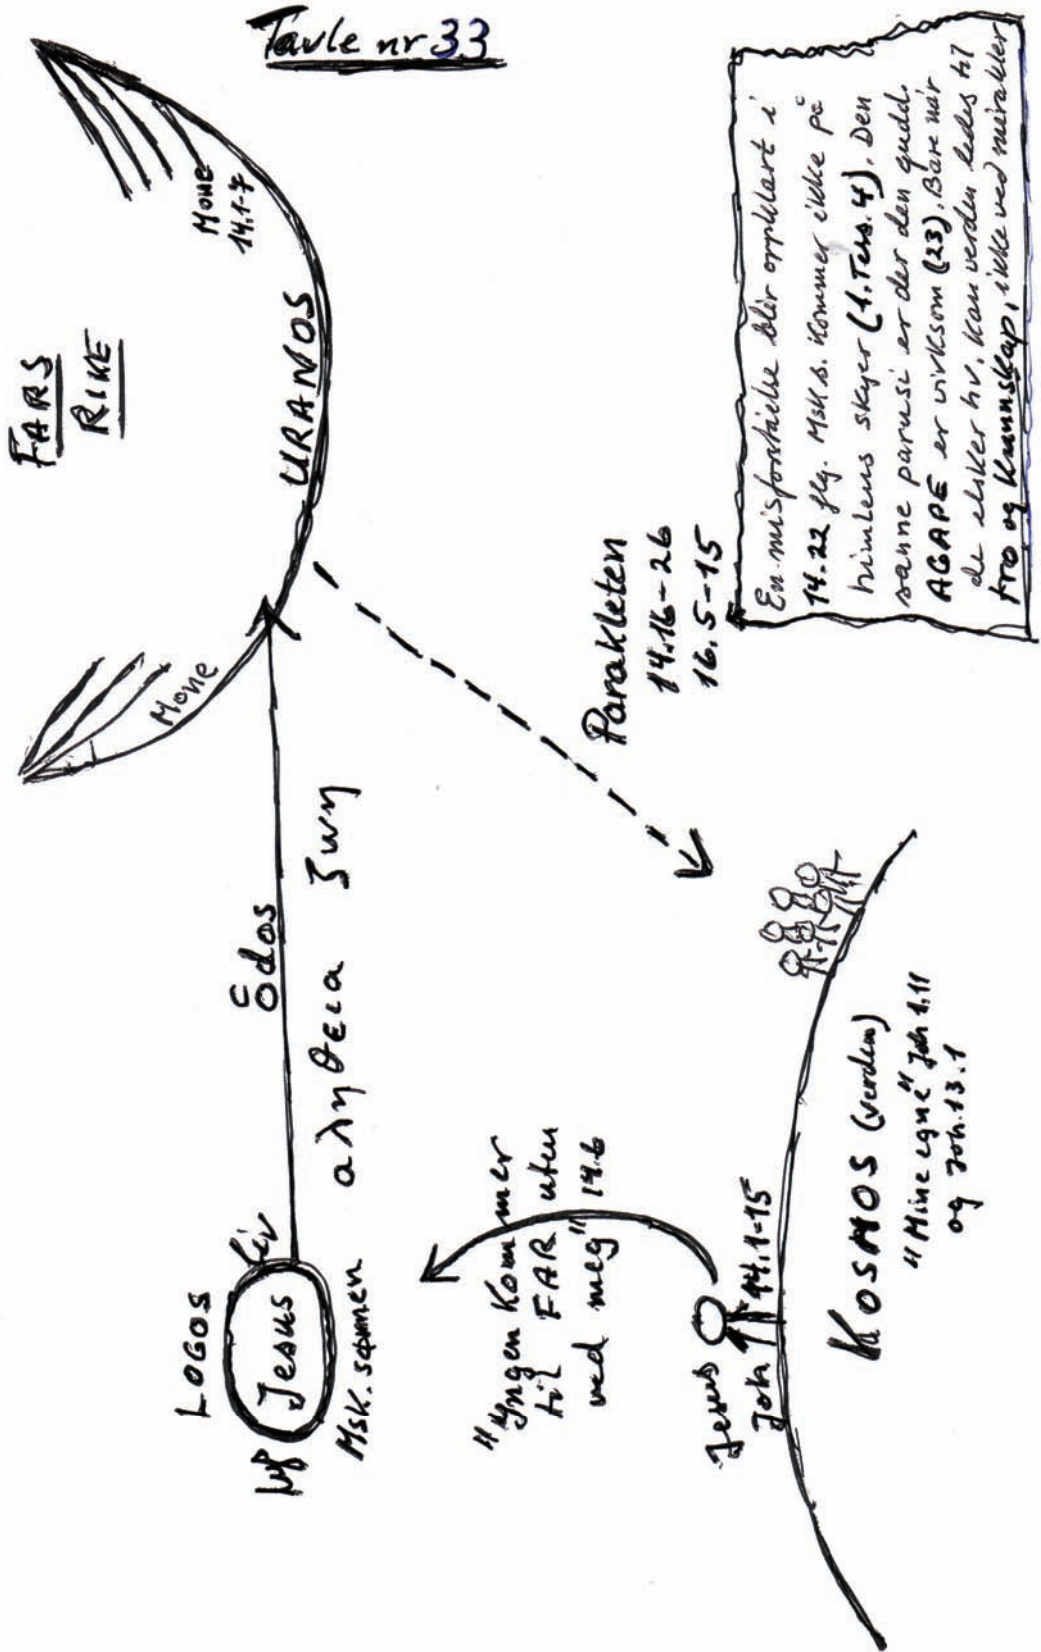 Tavle nr 33
FARS
RIKE
Mone
Mone
14.1-7
URANOS
LOGOS
Jesus
liv
Msk. sønnen
Ödos
αληθεια ζωη
"Yngen kommer
til FAR uten
ved meg" 14.6
Parakleten
14.16-26
16.5-15
Jesus
Joh 14.1-15
KOSMOS (verden)
"Mine egne" Joh 1.11
og Joh. 13.1
En misforståelse blir oppklart i
14.22 flg. Msk s. kommer ikke på
himlens skyer (1. Tess. 4). Den
sanne parusi er der den gudd.
AGAPE er virksom (23). Bare når
de elsker hv. kan verden ledes til
tro og kunnskap, ikke ved mirakler